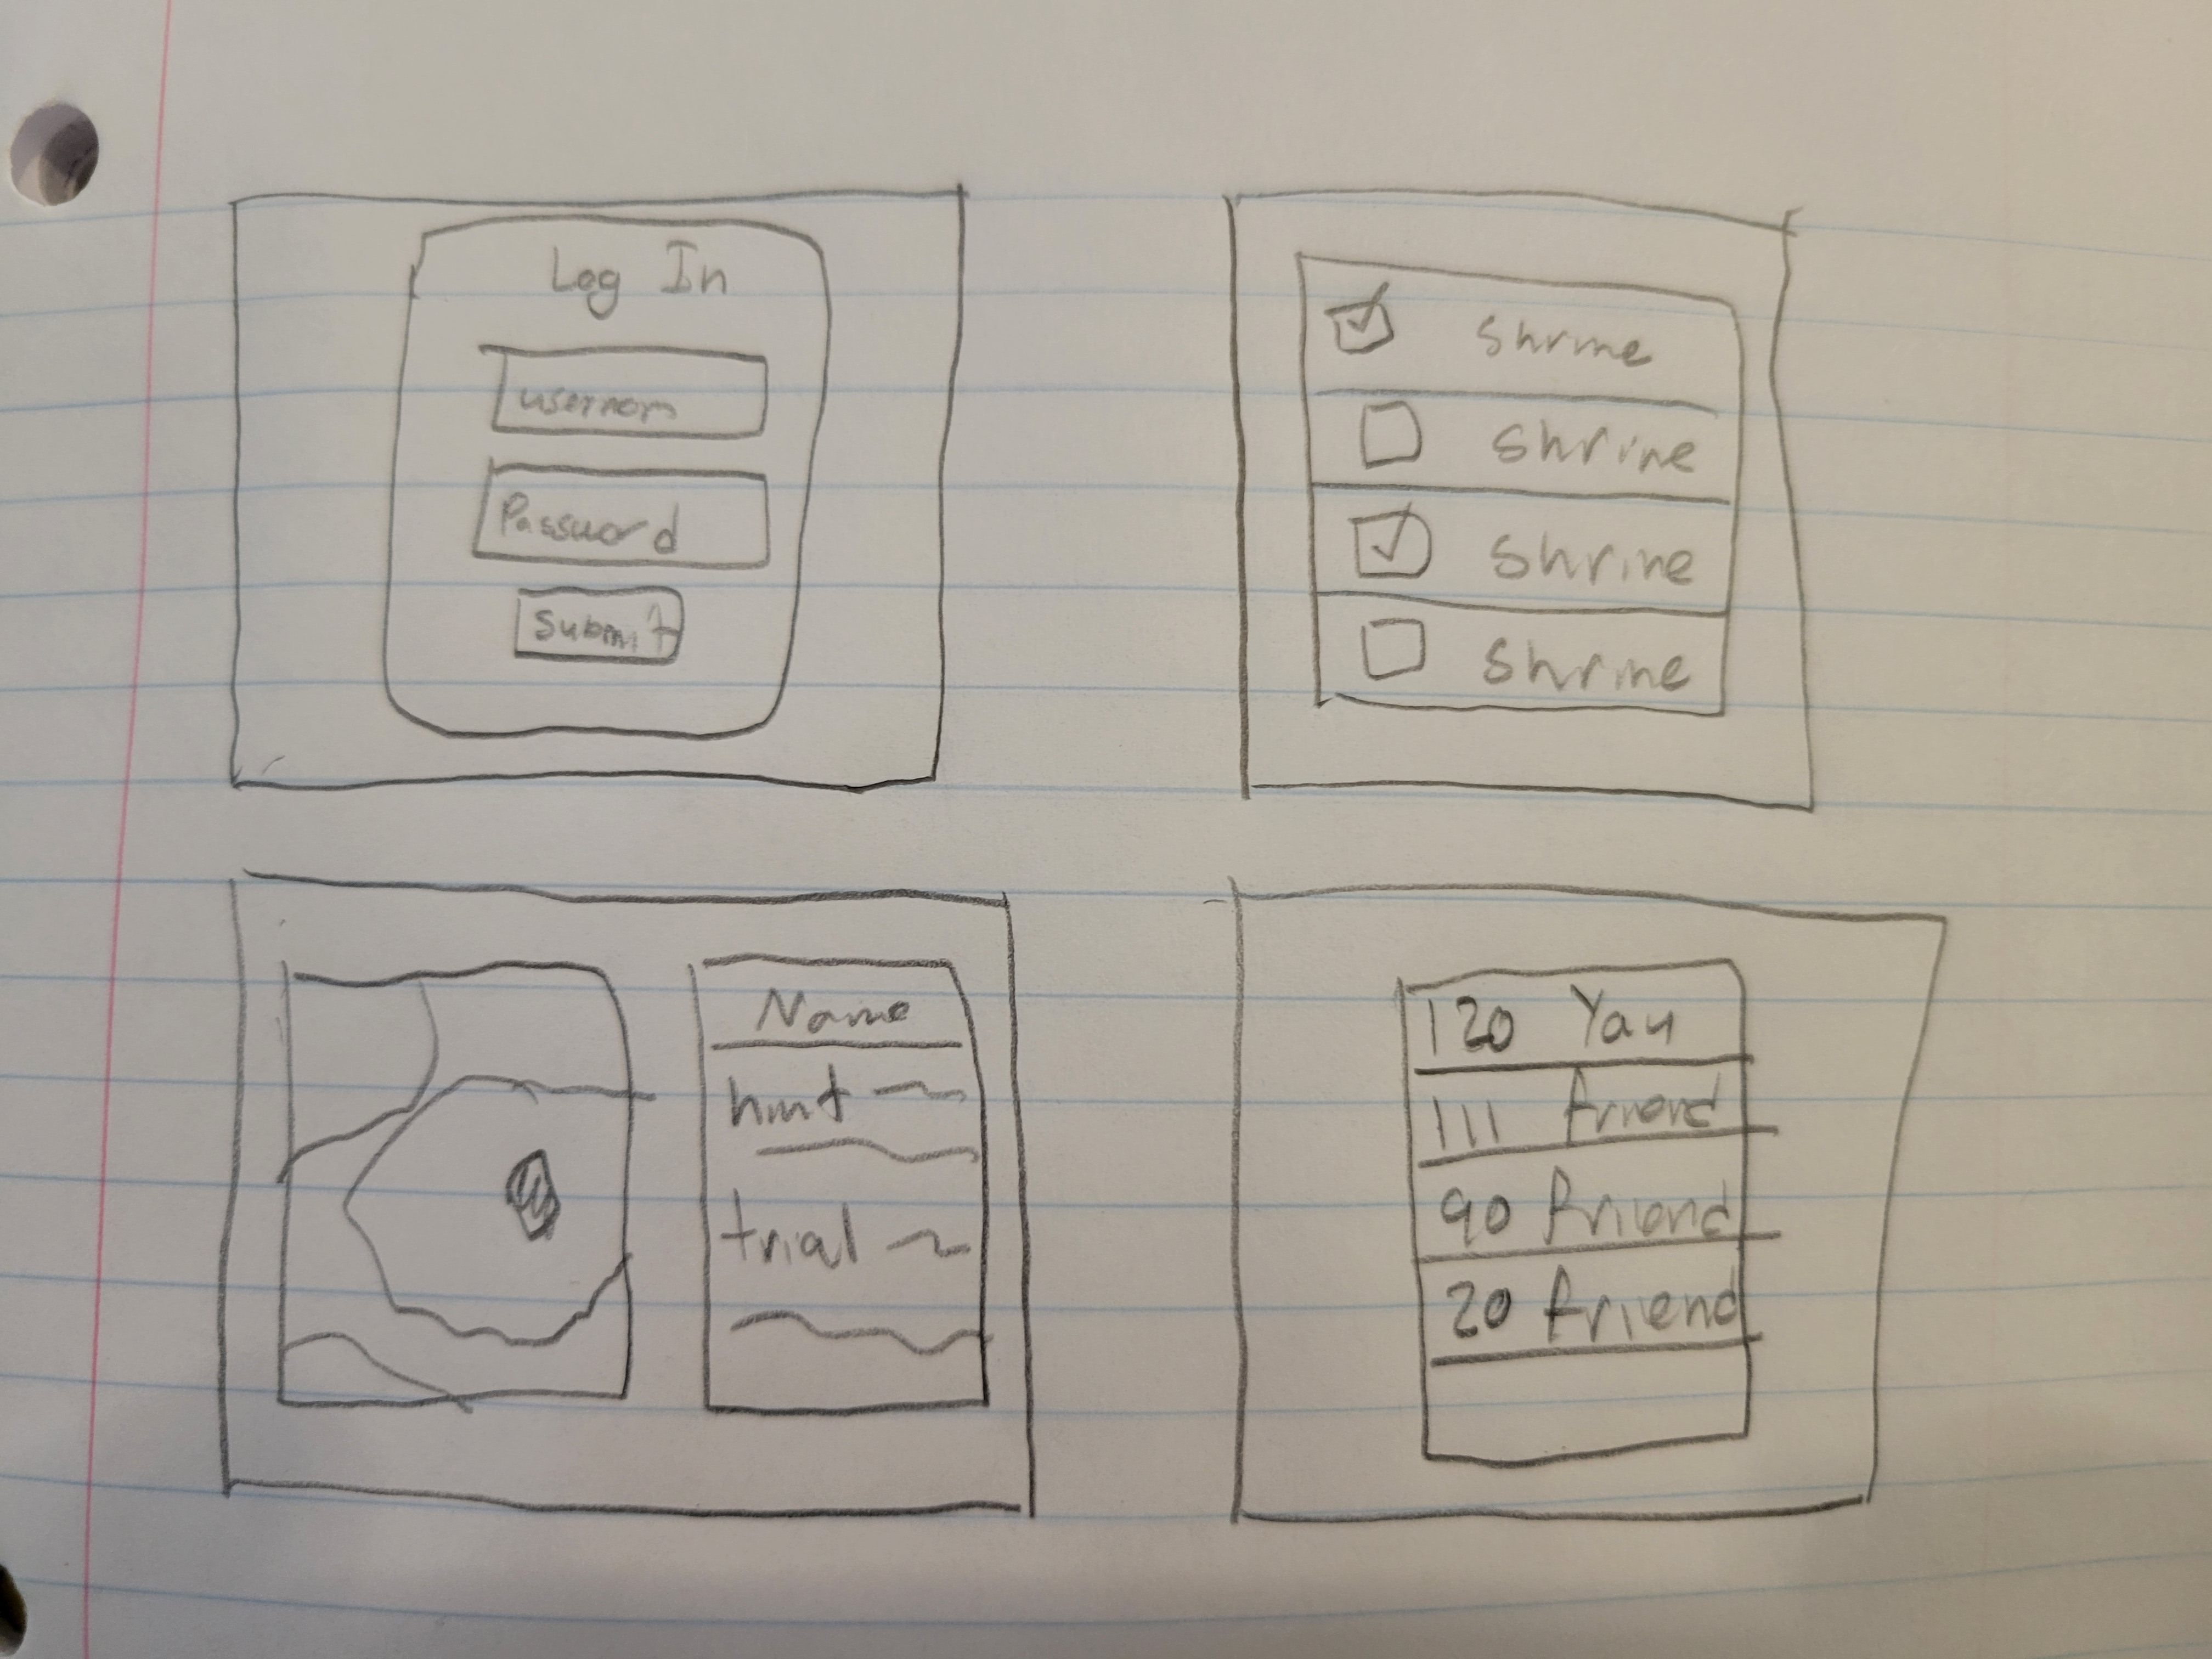 Log In
usernam
Password
Submit
Shrine
Shrine
Shrine
Shrine
Name
hint
trial
120 You
111 friend
90 friend
20 friend